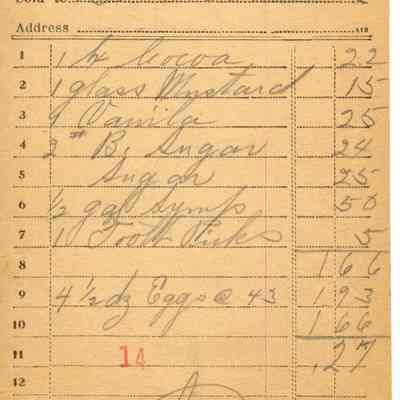 Sold to
Address
1 1 h Cocoa 22
2 1 glass Mustard 15
3 1 Vanila 25
4 2# B. Sugar 24
5 Sugar 25
6 1/2 gal Syrup 50
7 1 Tooth Picks 5
8 166
9 4 1/2 dz Eggs @ 43 193
10 166
11 14 .27
12